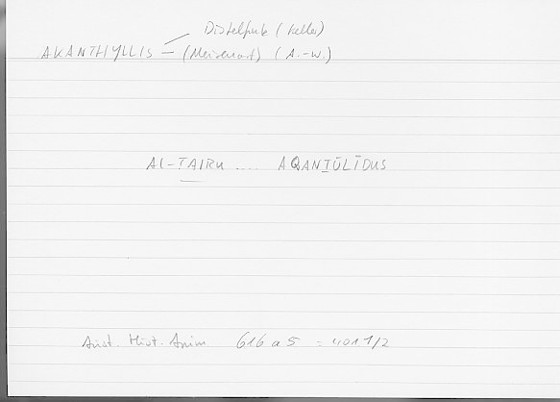 Distelfink (Keller)
AKANTHYLLIS — (Meisenart) (A.-W.)
AL-ṬAIRU .... AQANṬŪLĪDUS
Arist. Hist. Anim 616 a 5 = 401 1/2